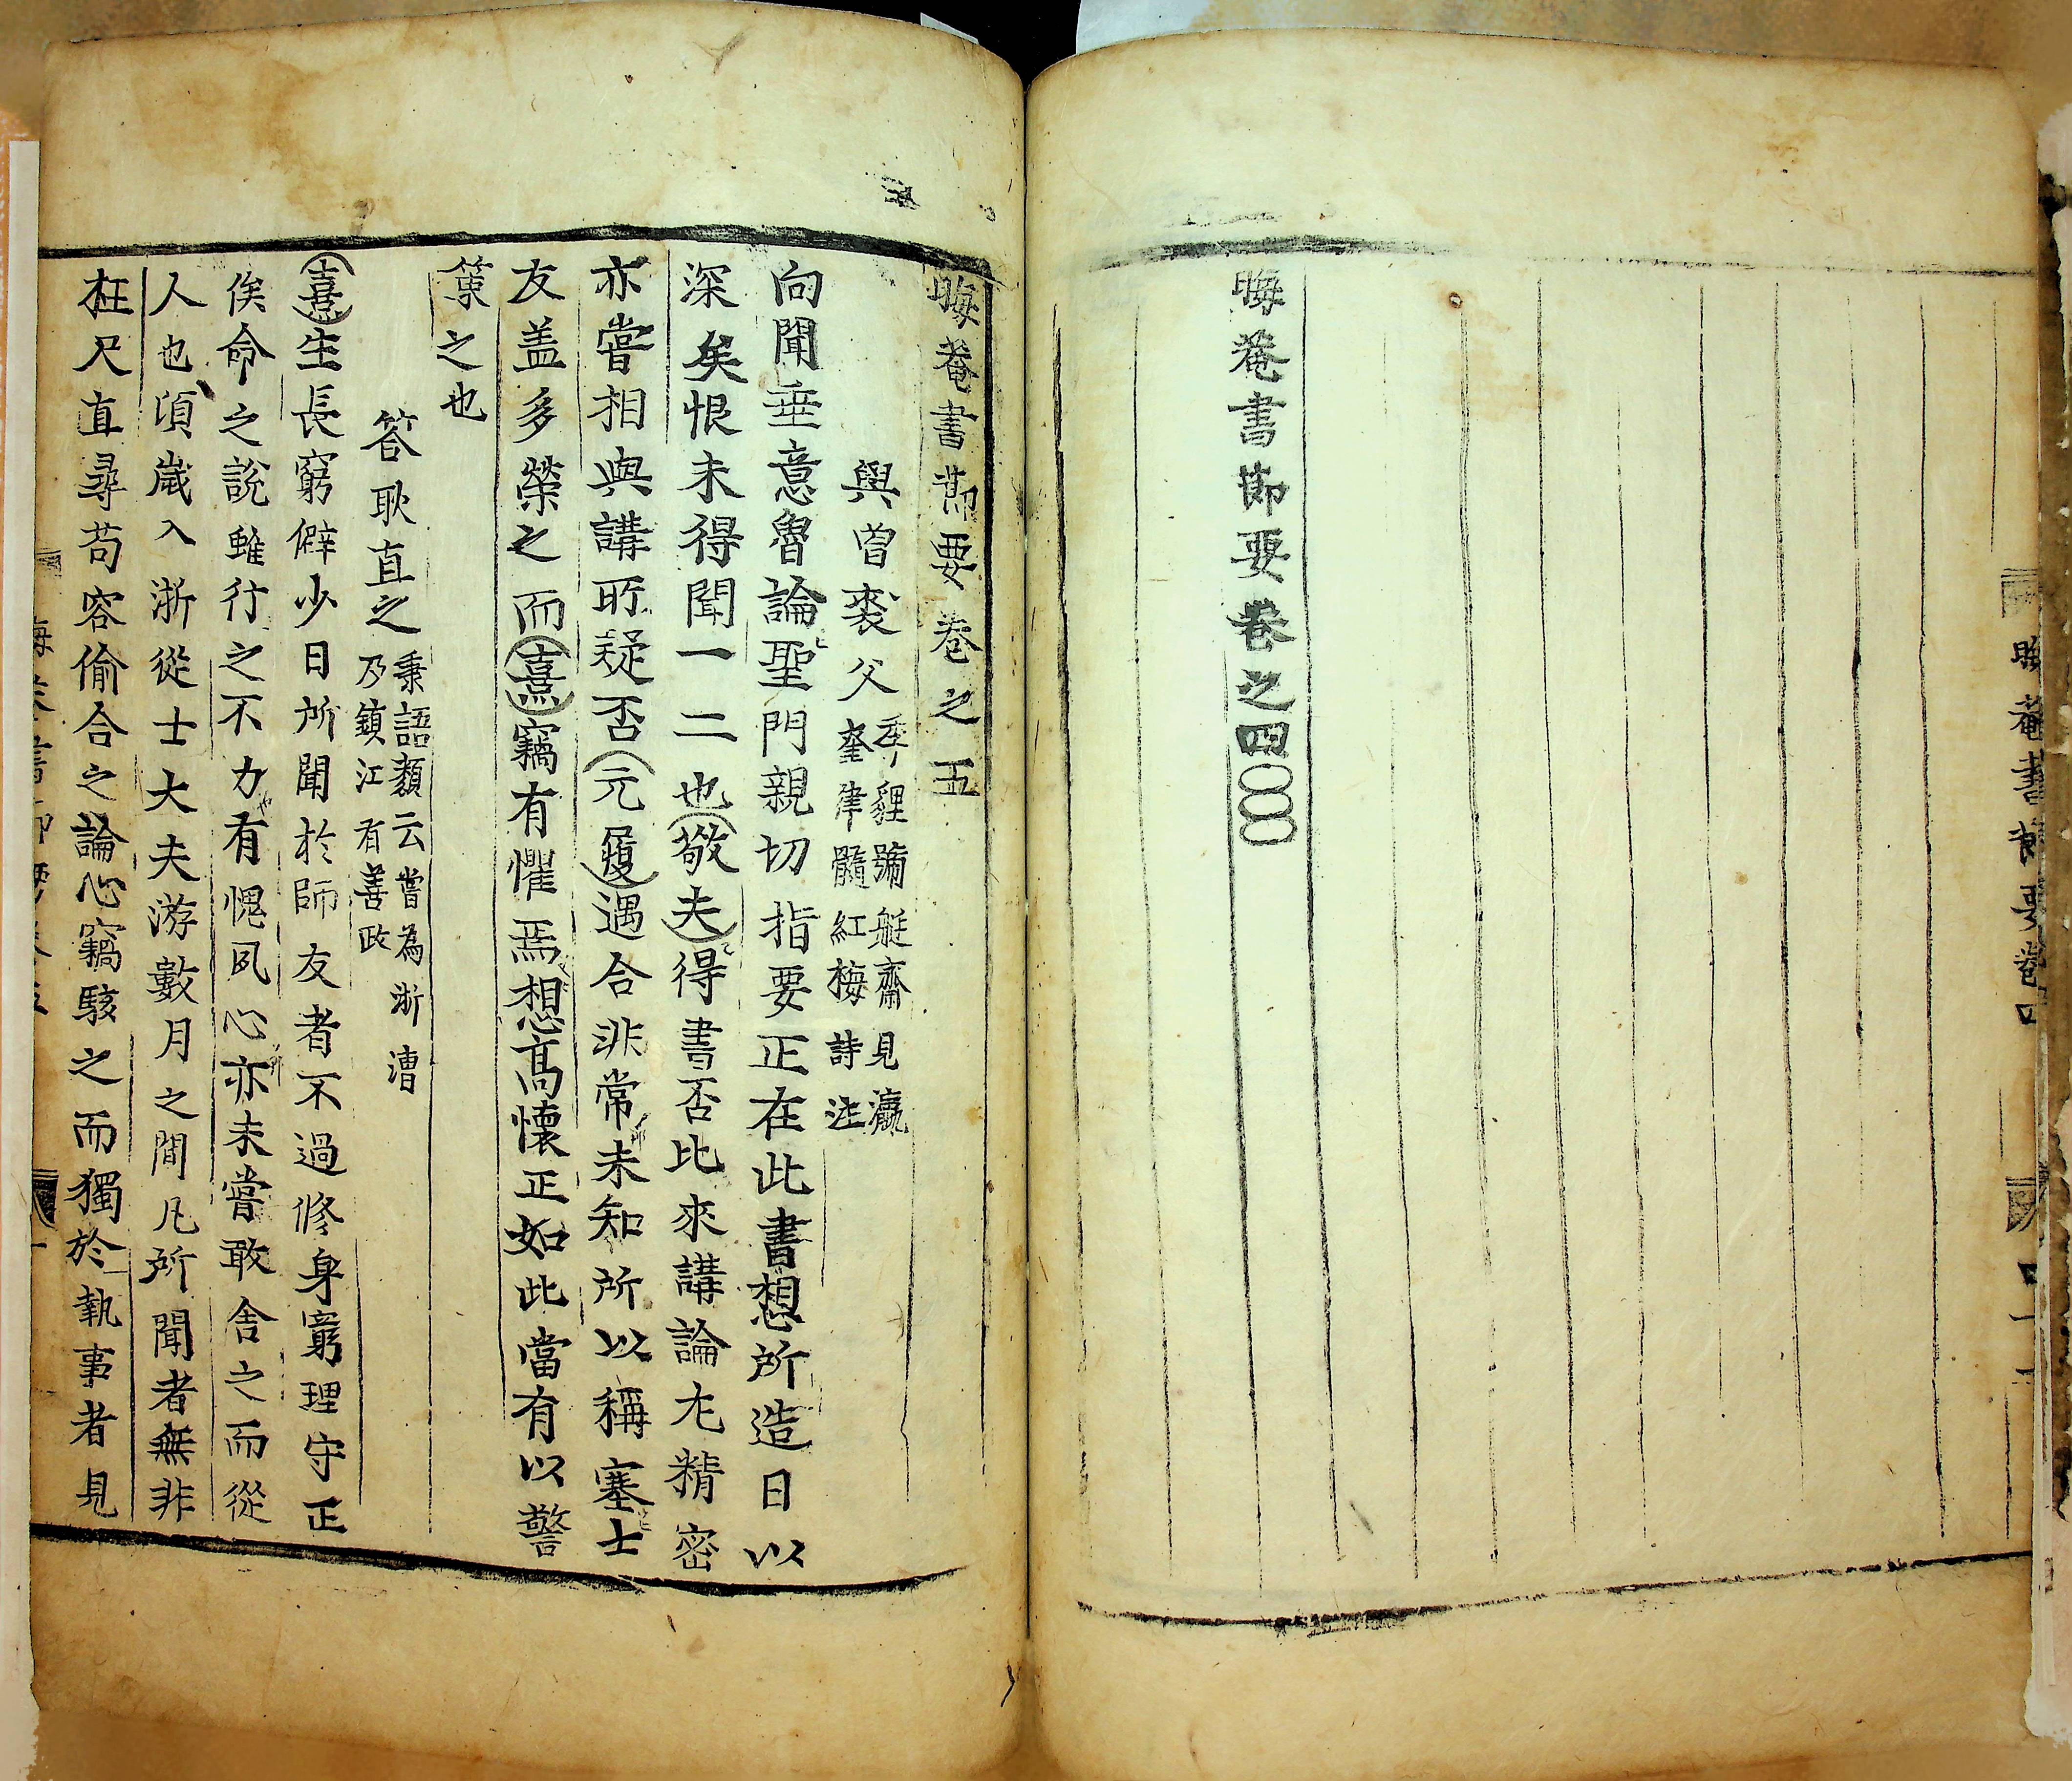 晦菴書節要卷四
晦菴書節要卷之四
晦菴書節要卷之五
與曾裘父
季貍號艇齋見瀛
奎律髓紅梅詩註
向聞垂意魯論聖門親切指要正在此書想所造日以
深矣恨未得聞一二也敬夫得書否比來講論尤精密
亦嘗相與講所疑否元履遇合非常未知所以稱塞士
友盖多榮之而熹竊有懼焉想高懷正如此當有以警
策之也
答耿直之
秉語類云嘗為浙漕
及鎮江有善政
熹生長窮僻少日所聞於師友者不過修身窮理守正
俟命之說雖行之不力有愧夙心亦未嘗敢舍之而從
人也頃嵗入浙從士大夫游數月之間凡所聞者無非
枉尺直尋苟容偷合之論心竊駭之而獨於執事者見